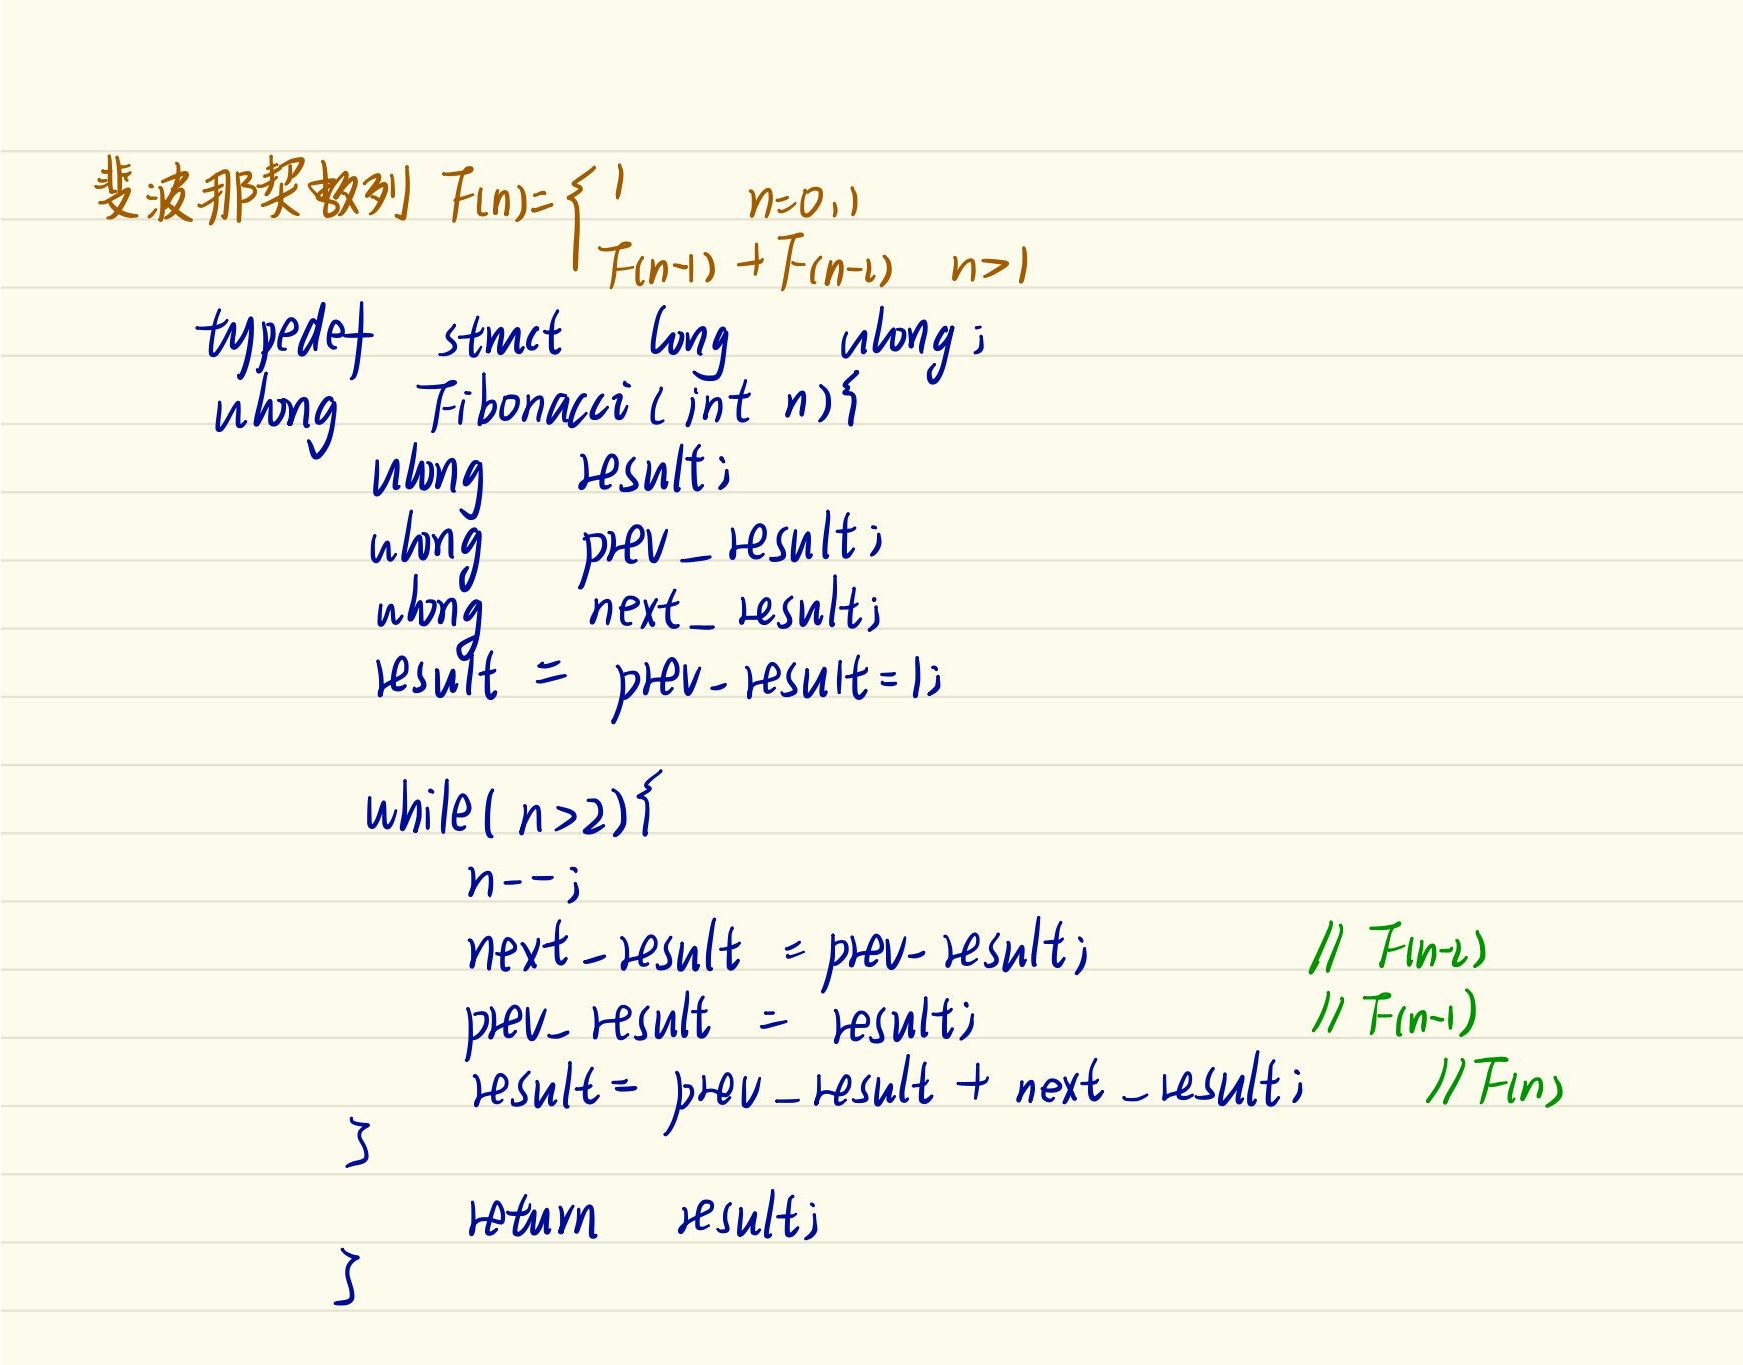 斐波那契数列 F(n)={ 1 n=0,1
F(n-1) + F(n-2) n>1
typedef struct long ulong;
ulong Fibonacci(int n){
ulong result;
ulong prev_result;
ulong next_result;
result = prev_result=1;
while(n>2){
n--;
next_result = prev_result; // F(n-2)
prev_result = result; // F(n-1)
result = prev_result + next_result; // F(n)
}
return result;
}